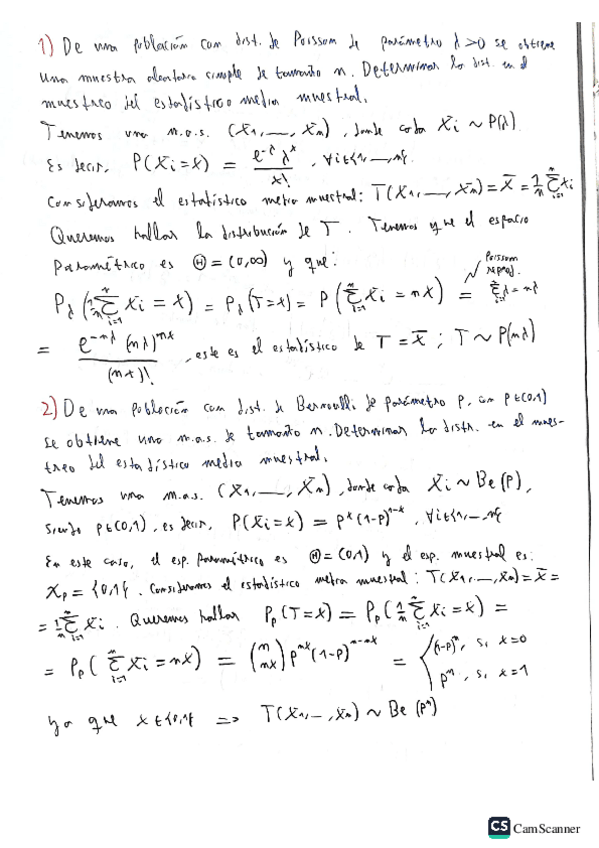 1) De una población con dist. de Poisson de parámetro λ>0 se obtiene
una muestra aleatoria simple de tamaño n. Determinar la dist. en el
muestreo del estadístico media muestral.
Tenemos una m.a.s. (X₁,—,Xₙ), donde cada Xi ~ P(λ).
Es decir, P(Xi=x) = e^{-λ} λ^x / x! , ∀i∈{1,—,n}.
Consideramos el estatístico metra muestral: T(X₁,—,Xₙ) = X̄ = 1/n Σ_{i=1}^{n} Xi
Queremos hallar la distribución de T. Tenemos que el espacio
paramétrico es Θ = (0,∞) y que:
Poisson reprod.
P_λ(1/n Σ_{i=1}^{n} Xi = x) = P_λ(T=x) = P(Σ_{i=1}^{n} Xi = nx) = Σ_{i=1}^{n} λ = nλ
= e^{-nλ} (nλ)^{nx} / (nx)! , este es el estatístico de T = X̄ ; T ~ P(nλ)
2) De una población con dist. de Bernoulli de parámetro p, con p∈(0,1)
se obtiene una m.a.s. de tamaño n. Determinar la distr. en el mues-
treo del estadístico media muestral.
Tenemos una m.a.s. (X₁,—,Xₙ), donde cada Xi ~ Be(p),
siendo p∈(0,1), es decir, P(Xi=x) = p^x (1-p)^{1-x}, ∀i∈{1,—,n}
En este caso, el esp. paramétrico es Θ = (0,1) y el esp. muestral es:
χ_p = {0,1}. Consideramos el estatístico metra muestral: T(X₁,—,Xₙ) = X̄ =
= 1/n Σ_{i=1}^{n} Xi. Queremos hallar P_p(T=x) = P_p(1/n Σ_{i=1}^{n} Xi = x) =
= P_p(Σ_{i=1}^{n} Xi = nx) = (n nx) p^{nx} (1-p)^{n-nx} = { (1-p)^n, si x=0
p^n, si x=1
ya que x∈{0,1} ⇒ T(X₁,—,Xₙ) ~ Be(p^n)
CS CamScanner